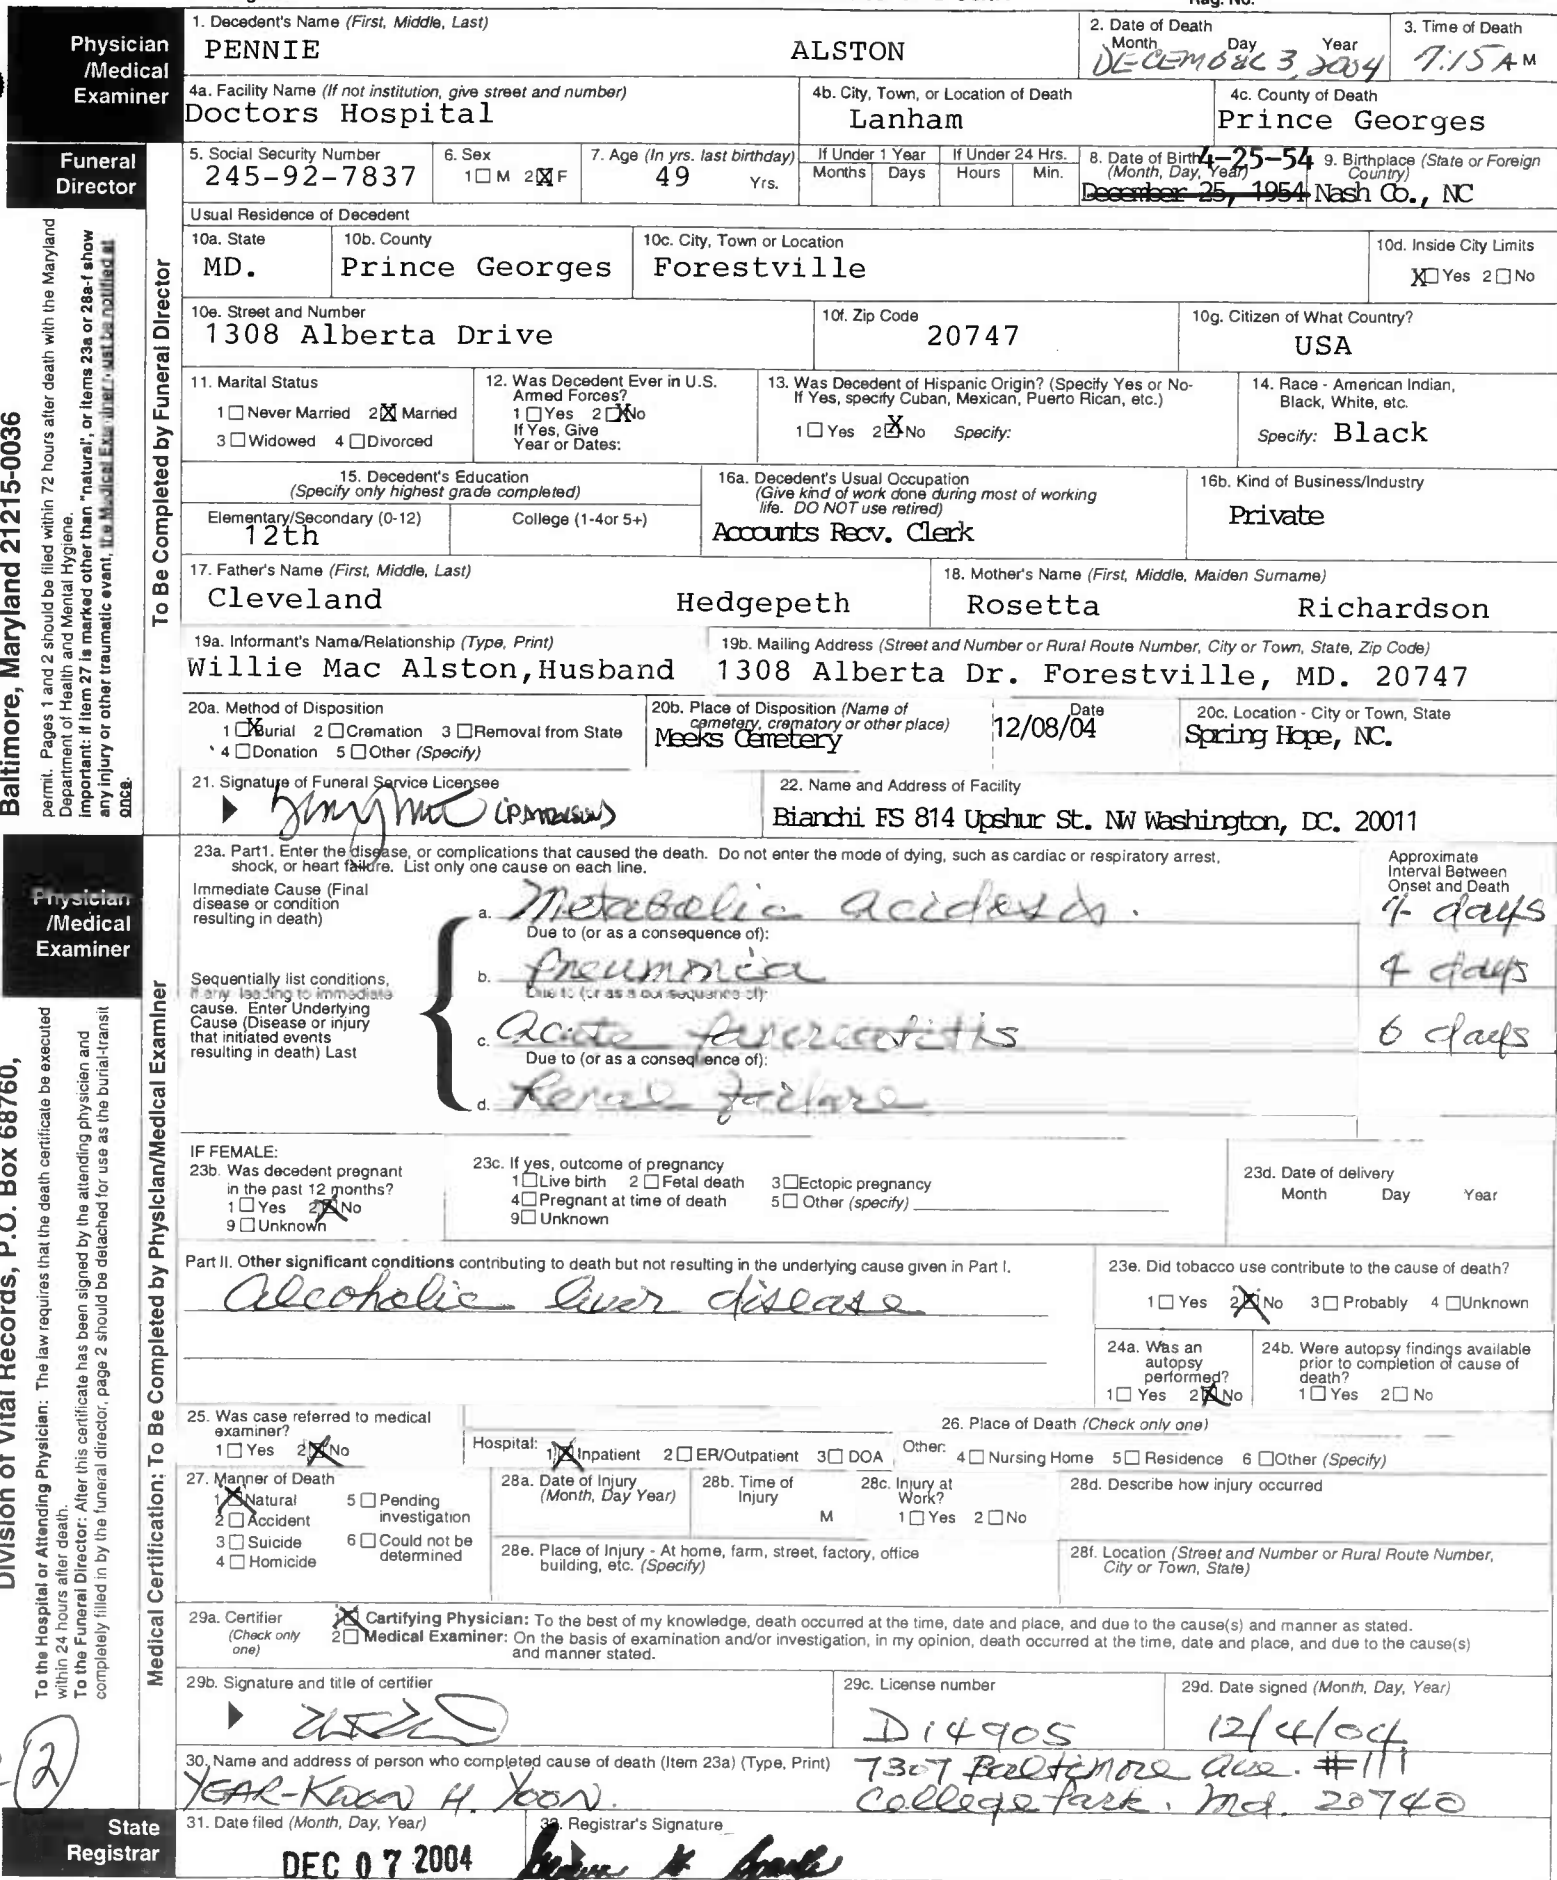 1. Decedent's Name (First, Middle, Last)
PENNIE ALSTON
2. Date of Death
Month Day Year
DECEMBER 3, 2004
3. Time of Death
7:15 A M
Physician
/Medical
Examiner
4a. Facility Name (If not institution, give street and number)
Doctors Hospital
4b. City, Town, or Location of Death
Lanham
4c. County of Death
Prince Georges
Funeral
Director
5. Social Security Number
245-92-7837
6. Sex
1☐ M 2☒ F
7. Age (In yrs. last birthday)
49 Yrs.
If Under 1 Year
Months Days
If Under 24 Hrs.
Hours Min.
8. Date of Birth 4-25-54
(Month, Day, Year)
December 25, 1954
9. Birthplace (State or Foreign
Country)
Nash Co., NC
Usual Residence of Decedent
10a. State
MD.
10b. County
Prince Georges
10c. City, Town or Location
Forestville
10d. Inside City Limits
X☐ Yes 2☐ No
10e. Street and Number
1308 Alberta Drive
10f. Zip Code
20747
10g. Citizen of What Country?
USA
11. Marital Status
1☐ Never Married 2☒ Married
3☐ Widowed 4☐ Divorced
12. Was Decedent Ever in U.S.
Armed Forces?
1☐ Yes 2☒ No
If Yes, Give
Year or Dates:
13. Was Decedent of Hispanic Origin? (Specify Yes or No-
If Yes, specify Cuban, Mexican, Puerto Rican, etc.)
1☐ Yes 2☒ No Specify:
14. Race - American Indian,
Black, White, etc.
Specify: Black
15. Decedent's Education
(Specify only highest grade completed)
Elementary/Secondary (0-12)
12th
College (1-4or 5+)
16a. Decedent's Usual Occupation
(Give kind of work done during most of working
life. DO NOT use retired)
Accounts Recv. Clerk
16b. Kind of Business/Industry
Private
17. Father's Name (First, Middle, Last)
Cleveland Hedgepeth
18. Mother's Name (First, Middle, Maiden Surname)
Rosetta Richardson
19a. Informant's Name/Relationship (Type, Print)
Willie Mac Alston,Husband
19b. Mailing Address (Street and Number or Rural Route Number, City or Town, State, Zip Code)
1308 Alberta Dr. Forestville, MD. 20747
20a. Method of Disposition
1☒ Burial 2☐ Cremation 3☐ Removal from State
4☐ Donation 5☐ Other (Specify)
20b. Place of Disposition (Name of
cemetery, crematory or other place)
Meeks Cemetery
Date
12/08/04
20c. Location - City or Town, State
Spring Hope, NC.
21. Signature of Funeral Service Licensee
22. Name and Address of Facility
Bianchi FS 814 Upshur St. NW Washington, DC. 20011
To Be Completed by Funeral Director
Baltimore, Maryland 21215-0036
permit. Pages 1 and 2 should be filed within 72 hours after death with the Maryland
Department of Health and Mental Hygiene.
important: if item 27 is marked other than "natural", or items 23a or 28a-f show
any injury or other traumatic event, the Medical Examiner must be notified at
once.
Physician
/Medical
Examiner
23a. Part1. Enter the disease, or complications that caused the death. Do not enter the mode of dying, such as cardiac or respiratory arrest,
shock, or heart failure. List only one cause on each line.
Approximate
Interval Between
Onset and Death
Immediate Cause (Final
disease or condition
resulting in death)
a. Metabolic acidosis.
days
Due to (or as a consequence of):
Sequentially list conditions,
if any leading to immediate
cause. Enter Underlying
Cause (Disease or injury
that initiated events
resulting in death) Last
b. Pneumonia
4 days
Due to (or as a consequence of):
c. Acute Pancreatitis
6 days
Due to (or as a consequence of):
d. Renal failure
IF FEMALE:
23b. Was decedent pregnant
in the past 12 months?
1☐ Yes 2☒ No
9☐ Unknown
23c. If yes, outcome of pregnancy
1☐ Live birth 2☐ Fetal death 3☐ Ectopic pregnancy
4☐ Pregnant at time of death 5☐ Other (specify)
9☐ Unknown
23d. Date of delivery
Month Day Year
Part II. Other significant conditions contributing to death but not resulting in the underlying cause given in Part I.
Alcoholic liver disease
23e. Did tobacco use contribute to the cause of death?
1☐ Yes 2☒ No 3☐ Probably 4☐ Unknown
24a. Was an
autopsy
performed?
1☐ Yes 2☒ No
24b. Were autopsy findings available
prior to completion of cause of
death?
1☐ Yes 2☐ No
25. Was case referred to medical
examiner?
1☐ Yes 2☒ No
26. Place of Death (Check only one)
Hospital: 1☒ Inpatient 2☐ ER/Outpatient 3☐ DOA Other: 4☐ Nursing Home 5☐ Residence 6☐ Other (Specify)
27. Manner of Death
1☒ Natural 5☐ Pending
investigation
2☐ Accident
3☐ Suicide 6☐ Could not be
determined
4☐ Homicide
28a. Date of Injury
(Month, Day Year)
28b. Time of
Injury
M
28c. Injury at
Work?
1☐ Yes 2☐ No
28d. Describe how injury occurred
28e. Place of Injury - At home, farm, street, factory, office
building, etc. (Specify)
28f. Location (Street and Number or Rural Route Number,
City or Town, State)
29a. Certifier
(Check only
one)
1☒ Certifying Physician: To the best of my knowledge, death occurred at the time, date and place, and due to the cause(s) and manner as stated.
2☐ Medical Examiner: On the basis of examination and/or investigation, in my opinion, death occurred at the time, date and place, and due to the cause(s)
and manner stated.
29b. Signature and title of certifier
29c. License number
D14905
29d. Date signed (Month, Day, Year)
12/4/04
30. Name and address of person who completed cause of death (Item 23a) (Type, Print)
YEAR-KWON H. YOON.
7307 Baltimore Ave. #111
College Park. Md. 20740
Medical Certification: To Be Completed by Physician/Medical Examiner
Division of Vital Records, P.O. Box 68760,
To the Hospital or Attending Physician: The law requires that the death certificate be executed
within 24 hours after death.
To the Funeral Director: After this certificate has been signed by the attending physician and
completely filled in by the funeral director, page 2 should be detached for use as the burial-transit
2
State
Registrar
31. Date filed (Month, Day, Year)
DEC 07 2004
32. Registrar's Signature